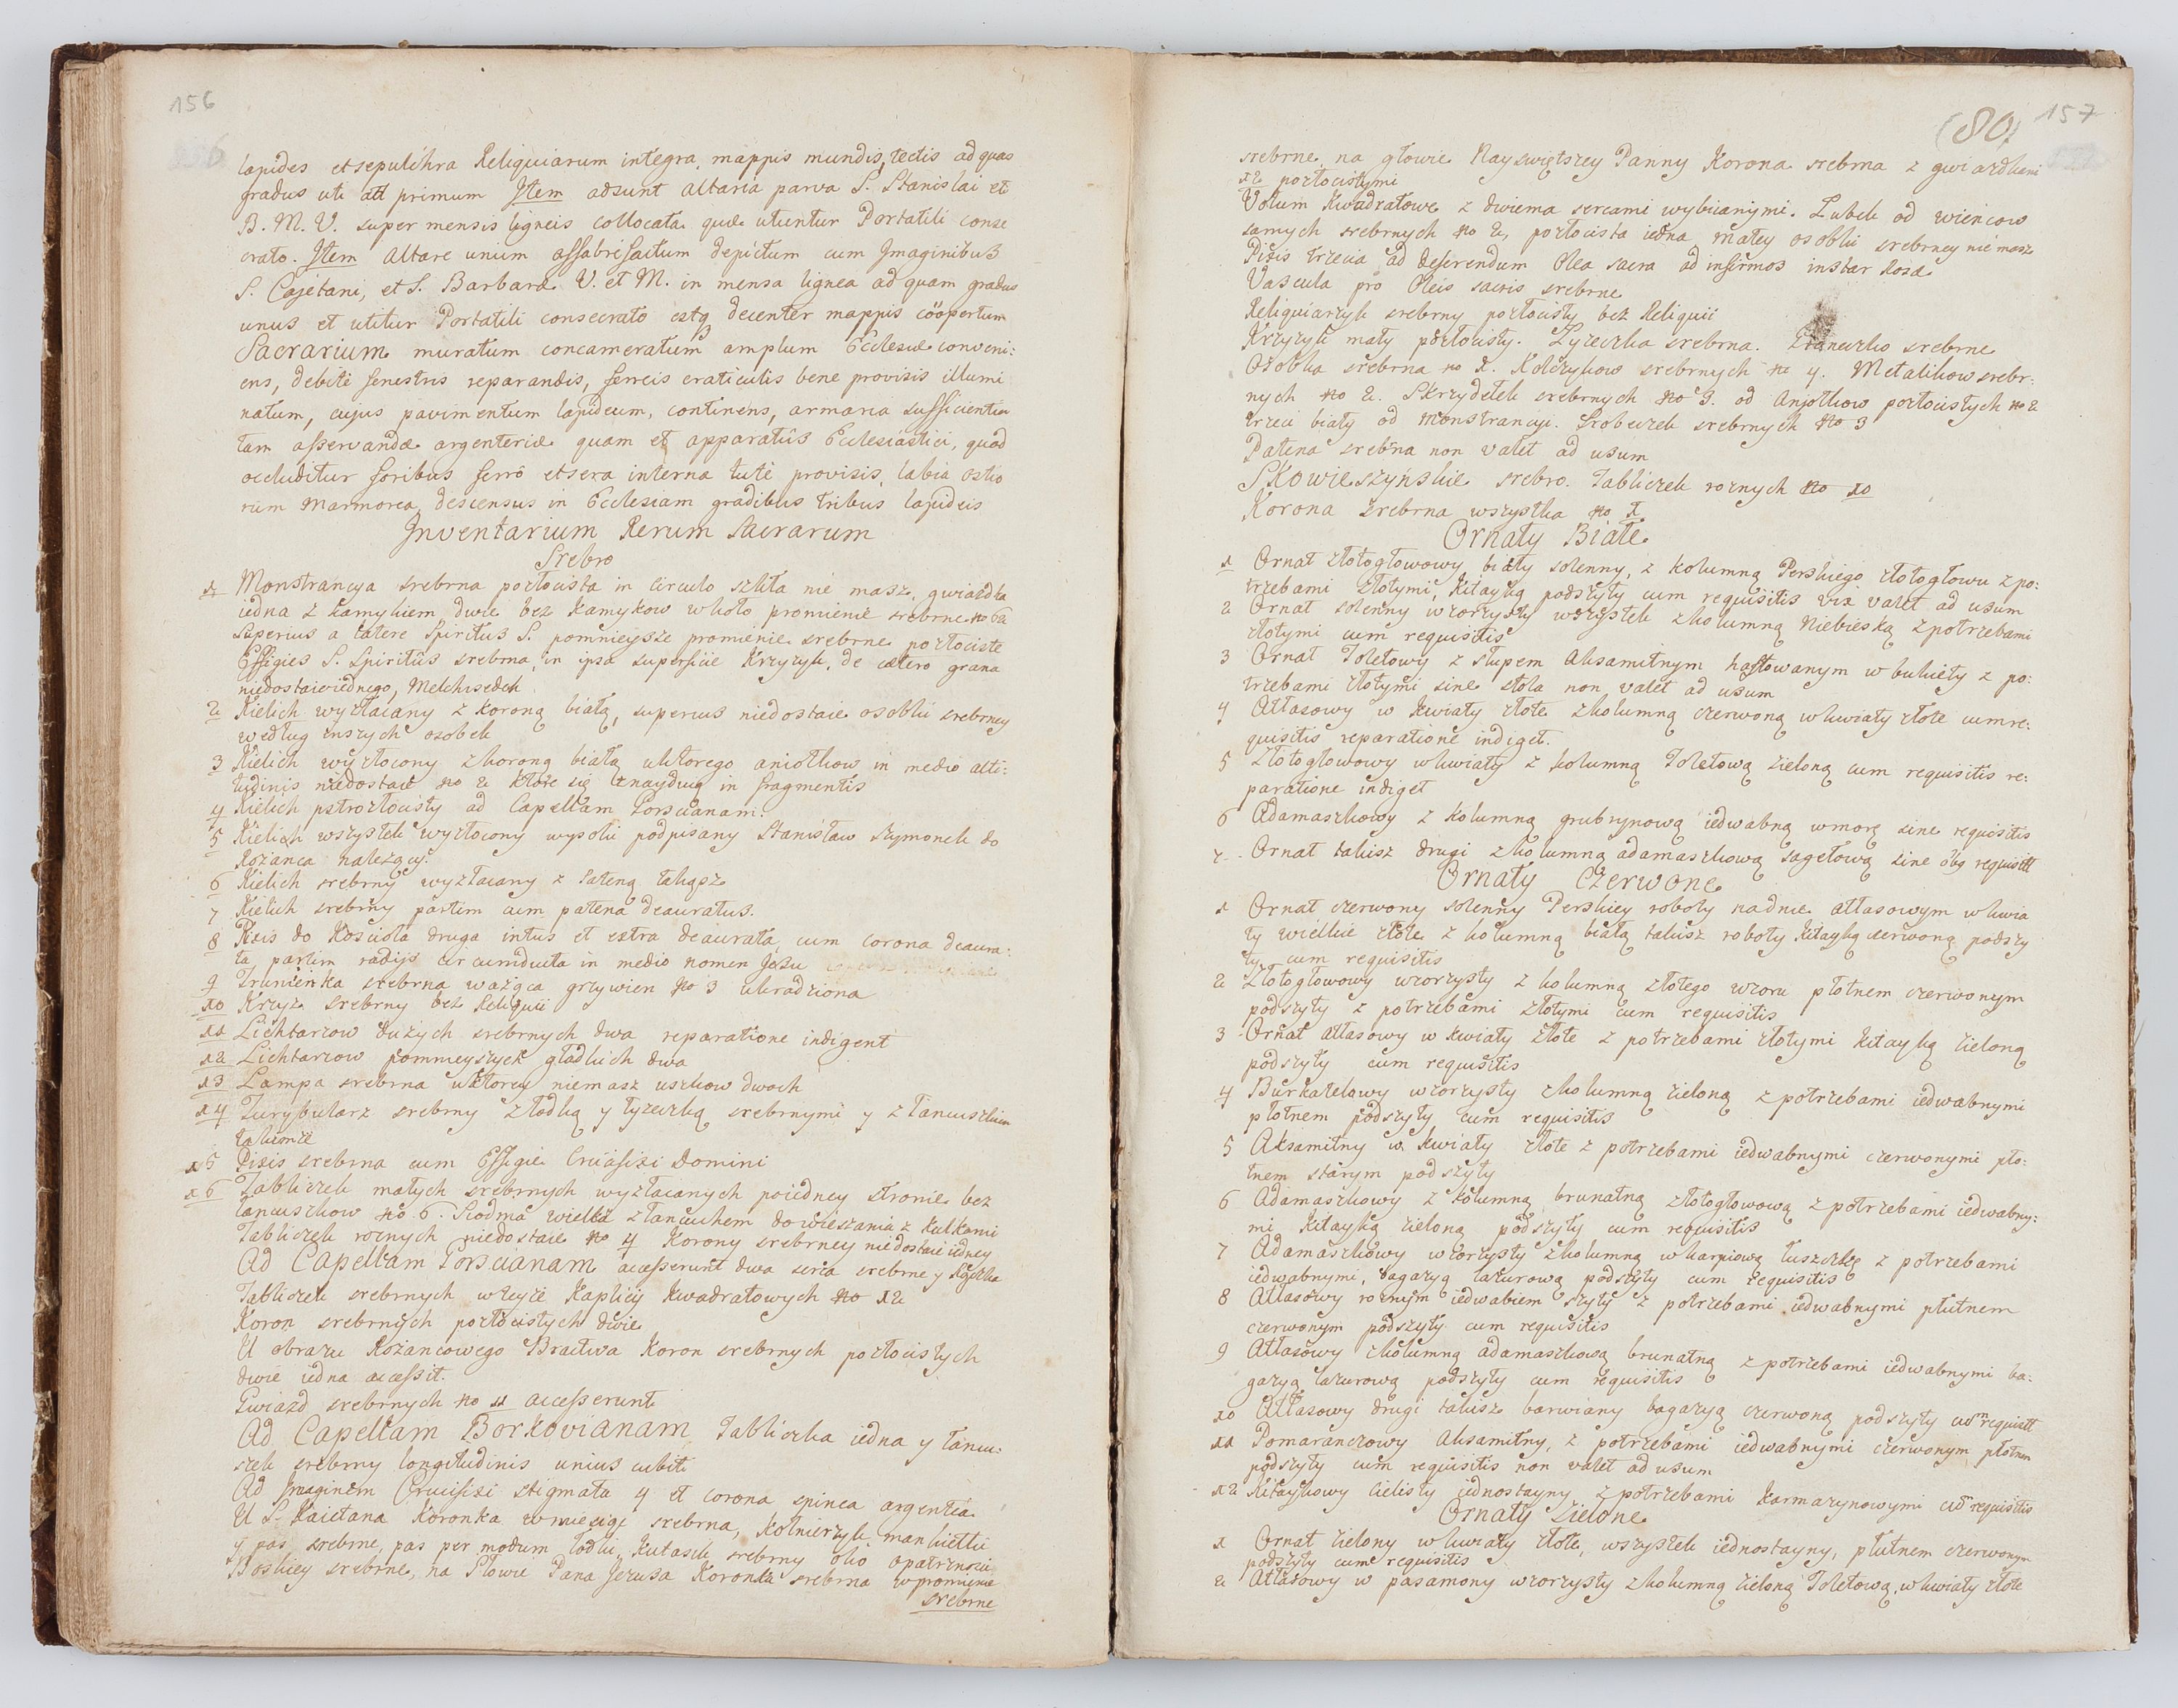 156
lapides et sepulchra Reliquiarum integra, mappis mundis tectis ad quas
gradus uti ad primum Item adsunt altaria parva S. Stanislai et
B. M. V. super mensis ligneis collocata quæ utuntur Portatili conse
crato. Item Altare unum affabrefactum depictum cum Imaginibus
S. Cajetani, et S. Barbaræ V. et M. in mensa lignea ad quam gradus
unus et utitur Portatili consecrato estq decenter mappis coöpertum
Sacrarium muratum concameratum amplum Ecclesiæ conveni:
ens, debite fenestris reparandis, ferreis craticulis bene provisis illumi
natum, cujus pavimentum lapideum, continens, armaria sufficientia
tam asservandæ argenteriæ quam et apparatûs Ecclesiastici, quod
occluditur foribus ferrô et sera interna tutè provisis, labia ostio
rum Marmorea, descensus in Ecclesiam gradibus tribus lapideis
Inventarium Rerum Sacrarum
Srebro
1 Monstrancya srebrna pozłocista in circulo szkła nie masz, gwiazdka
iedna z kamykiem, dwie bez kamykow wkoło promienie srebrne no
Superius a latere Spiritus S. pomnieysze promienie srebrne pozłociste
Effigies S. Spiritûs srebrna, in ipsa superficie Krzyzyk, de cætero grana
niedostaie iednego, Melchisedech
2 Kielich wyzłacany z koroną białą, superius niedostaie osobki srebrney
według inszych osobek
3 Kielich wyzłocony z koroną białą u ktorego aniołkow in medio alti:
tudinis niedostaie no 2 ktore się znayduią in fragmentis
4 Kielich pstrozłocisty ad Capellam Porscianam.
5 Kielich wszystek wyzłocony wysoki podpisany Stanisław Szymonek do
Rożanca nalezący.
6 Kielich srebrny wyzłacany z Pateną takąsz
7 Kielich srebrny partim cum patena deauratus.
8 Pixis do Kościoła druga intus et extra deaurata, cum corona deaura:
ta partim radijs circumducta in medio nomen Jesu
9 Trunienka srebrna ważąca grzywien no 3 ukradziona
10 Krzyz srebrny bez Reliquii
11 Lichtarzow dużych srebrnych dwa reparatione indigent
12 Lichtarzow pomnieyszych gładkich dwa
13 Lampa srebrna u ktorey niemasz uszkow dwoch
14 Turybularz srebrny z łodką y łyzeczką srebrnymi y z łancuszkiem
takimze
15 Pixis srebrna cum Effigie Crucifixi Domini
16 Tabliczek małych srebrnych wyzłacanych poiedney stronie bez
łancuszkow no 6. Siodma wielka z łancuchem do wieszania z kulkami
Tabliczek roznych niedostaie no 4 Korony srebrney niedostaie iedney
Ad Capellam Porscianam accesserunt dwa serca srebrne y Rączka
Tabliczek srebrnych w teyże Kaplicy kwadratowych no 12
Koron srebrnych pozłocistych dwie
U obrazu Rożancowego Bractwa Koron srebrnych pozłocistych
dwie iedna accessit.
Gwiazd srebrnych no 11 accesserunt
Ad Capellam Borkovianam Tabliczka iedna y łancu:
szek srebrny longitudinis unius cubiti
Ad Imaginem Crucifixi stigmata 4 et corona spinea argentea
U S. Kaietana Koronka w miesiąc srebrna, Kołnierzyk, mankietki
y pas srebrne, pas per modum łodki, Kutasek srebrny oko Opatrznosci
Boskiey srebrne, na Głowie Pana Jezusa Koronka srebrna w promienie
srebrne
(80) 157
srebrne, na głowie Nayswiętszey Panny Korona srebrna z gwiazdkami
12 pozłocistymi
Votum kwadratowe z dwiema sercami wybiianymi. Lubek od wiencow
samych srebrnych no 2, pozłocista iedna małey osobki srebrney niemasz
Pixis trzecia ad deferendum Olea sacra ad infirmos instar Rosæ
Vascula pro Oleis sacris srebrne
Reliquiarzyk srebrny pozłocisty bez Reliquii
Krzyzyk mały pozłocisty. Łyzeczka srebrna. srebrne
Osobka srebrna no 1. Kolczykow srebrnych no 4. Metalikow srebr:
nych no 2. Skrzydełek srebrnych no 9. od Anjołkow pozłocistych no 2
trzeci biały od Monstrancyi. Srobeczek srebrnych no 3
Patena srebrna non valet ad usum
Skowieszyńskie srebro. Tabliczek roznych no 10
Korona srebrna wszystka no 1
Ornaty Białe
1 Ornat złotogłowowy biały solenny, z kolumną Perskiego złotogłowu z po:
trzebami złotymi, kitayką podszyty cum requisitis vix valet ad usum
2 Ornat solenny wzorzysty wszystek z kolumną Niebieską z potrzebami
złotymi cum requisitis
3 Ornat Toletowy z słupem Aksamitnym haftowanym w bukiety z po:
trzebami złotymi sine stola non valet ad usum
4 Atlasowy w kwiaty złote z kolumną czerwoną w kwiaty złote cum re:
quisitis reparatione indiget.
5 Złotogłowowy w kwiaty z kolumną Toletową zieloną cum requisitis re:
paratione indiget
6 Adamaszkowy z kolumną grubrynową iedwabną w morę sine requisitis
7 Ornat takisz drugi z kolumną adamaszkową sagetową sine requisit
Ornaty Czerwone
1 Ornat czerwony solenny Perskiey roboty na dnie atlasowym w kwia
ty wielkie złote z kolumną białą takisz roboty kitayką czerwoną podszy
ty cum requisitis
2 Złotogłowowy wzorzysty z kolumną złotego wzoru płotnem czerwonym
podszyty z potrzebami złotymi cum requisitis
3 Ornat atlasowy w kwiaty złote z potrzebami złotymi kitayką zieloną
podszyty cum requisitis
4 Burkatelowy wzorzysty z kolumną zieloną z potrzebami iedwabnymi
płotnem podszyty cum requisitis
5 Aksamitny w kwiaty złote z potrzebami iedwabnymi czerwonymi pło:
tnem starym podszyty
6 Adamaszkowy z kolumną brunatną złotogłowową z potrzebami iedwabny:
mi kitayką zieloną podszyty cum requisitis
7 Adamaszkowy wzorzysty z kolumną w karpiową łuszczkę z potrzebami
iedwabnymi, bagazyą lazurową podszyty cum requisitis
8 Atlasowy roznym iedwabiem szyty z potrzebami iedwabnymi płutnem
czerwonym podszyty cum requisitis
9 Atlasowy z kolumną adamaszkową brunatną z potrzebami iedwabnymi ba:
gazyą lazurową podszyty cum requisitis
10 Atlasowy drugi takisz barwiany bagazyą czerwoną podszyty cum requisit
11 Pomaranczowy Aksamitny, z potrzebami iedwabnymi czerwonym płotnem
podszyty cum requisitis non valet ad usum
12 Kitaykowy cielisty iednostayny z potrzebami karmazynowymi cum requisitis
Ornaty Zielone
1 Ornat zielony w kwiaty złote, wszystek iednostayny, płutnem czerwonym
podszyty cum requisitis
2 Atlasowy w pasamony wzorzysty z kolumną zieloną Toletową, w kwiaty złote